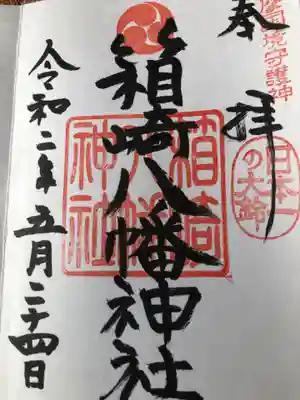 摩国境守護神
日本一の大鈴
奉拝
箱崎八幡神社
箱崎八幡神社
令和二年五月二十四日